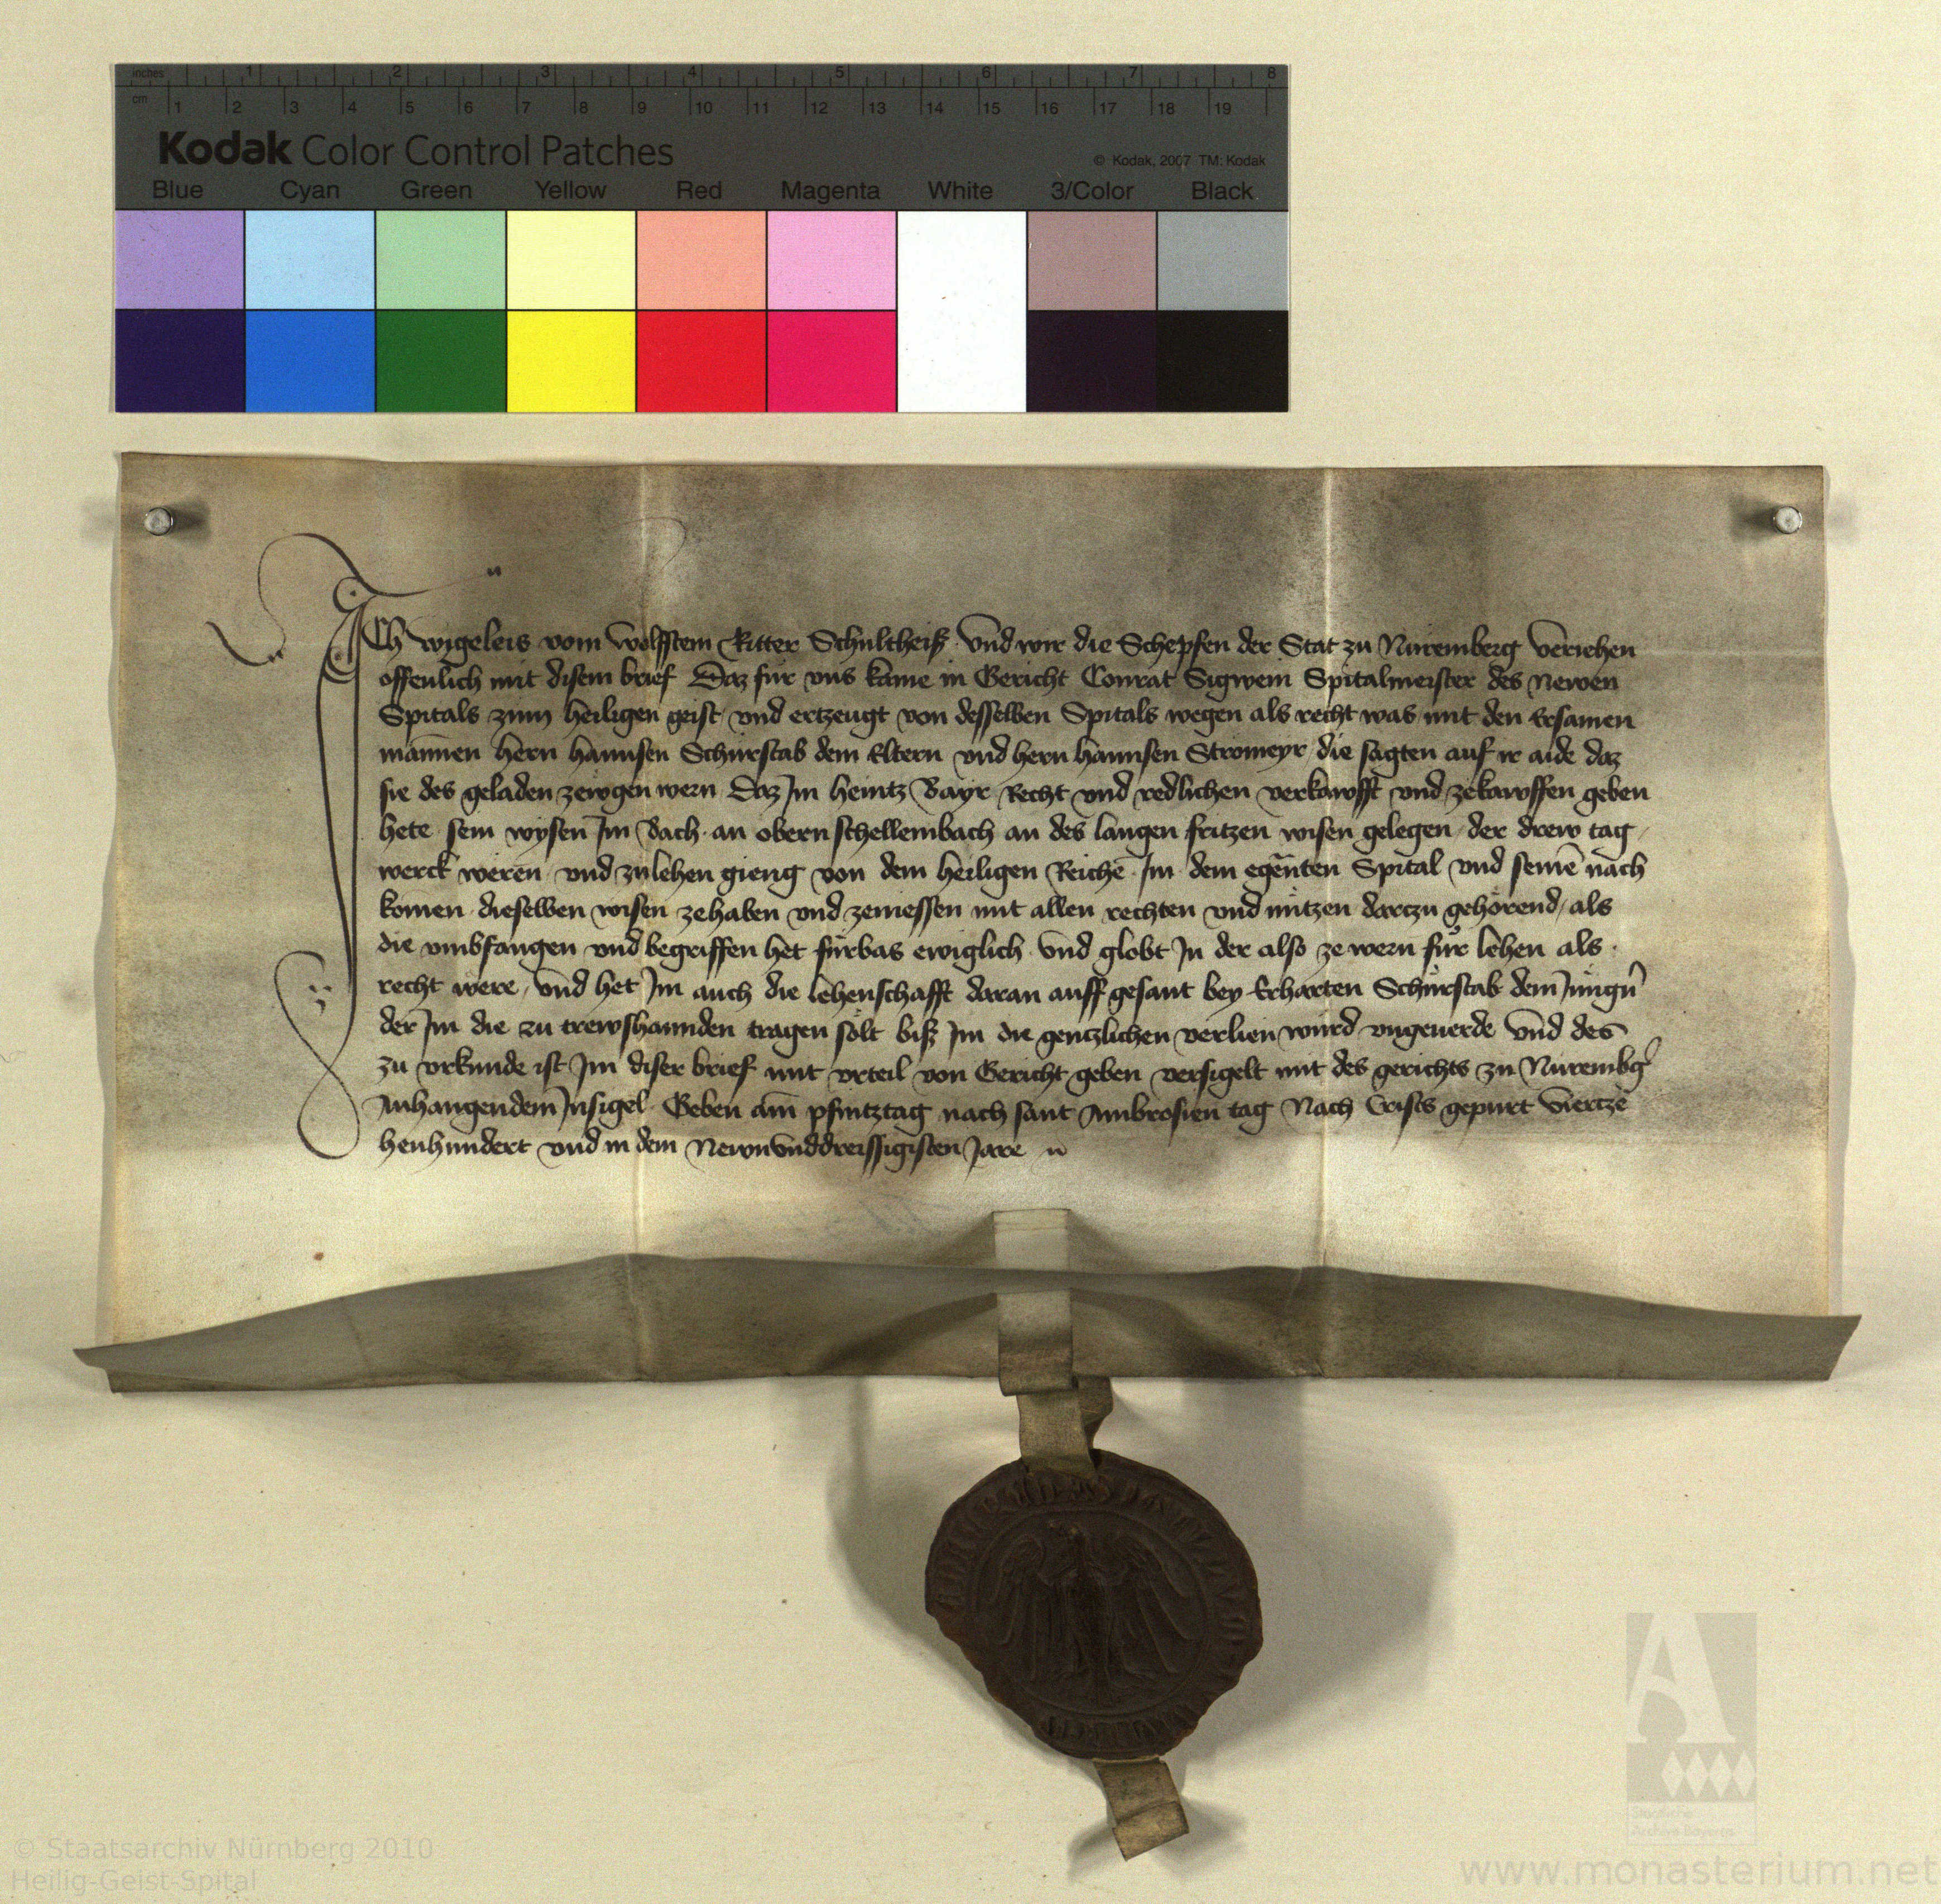 inches 1 2 3 4 5 6 7 8
cm 1 2 3 4 5 6 7 8 9 10 11 12 13 14 15 16 17 18 19
Kodak Color Control Patches
© Kodak, 2007 TM: Kodak
Blue Cyan Green Yellow Red Magenta White 3/Color Black
ICh wigeleis vom wolfstein Ritter Schultheiß und wir die Schepfen der Stat zu Nuremberg veriehen
offenlich mit disem brief Daz für uns kame in Gericht Conrat Sigwein Spitalmeister des newen
Spitals zum heiligen geist und ertzeugt von desselben Spitals wegen als recht was mit den Ersamen
mannen hern hannsen Schürstab dem Eltern und hern hannsen Stromeyr die sagten auf ir aide daz
sie des geladen zewgen wern Daz Im heintz Bayr Recht und redlichen verkawfft und zekawffen geben
hete sein wysen Im Bach an obern schellembach an des langen fritzen wisen gelegen der drew tag
werck weren und zu lehen gieng von dem heiligen Reiche Im dem egenten Spital und seinē nach
komen dieselben wisen zehaben und zeniessen mit allen rechten und nützen darczu gehörend als
die umbfangen und begriffen het fürbas ewiglich und globt In der also ze wern für lehen als
recht were und het Im auch die lehenschafft daran auff gesant bey Erharten Schürstab dem Jüngn
der Im die zu trewshannden tragen sölt biß Im die gentzlichen verlien würd ungeverde und des
zu urkunde ist Im diser brief mit urteil von Gericht geben versigelt mit des gerichts zu Nurembg
Anhangendem Insigel Geben am pfintztag nach sant Ambrosien tag Nach Crists gepurt viertze
henhundert und in dem Newnunddreissigisten Jare
© Staatsarchiv Nürnberg 2010
Heilig-Geist-Spital
Staatliche
Archive Bayerns
www.monasterium.net